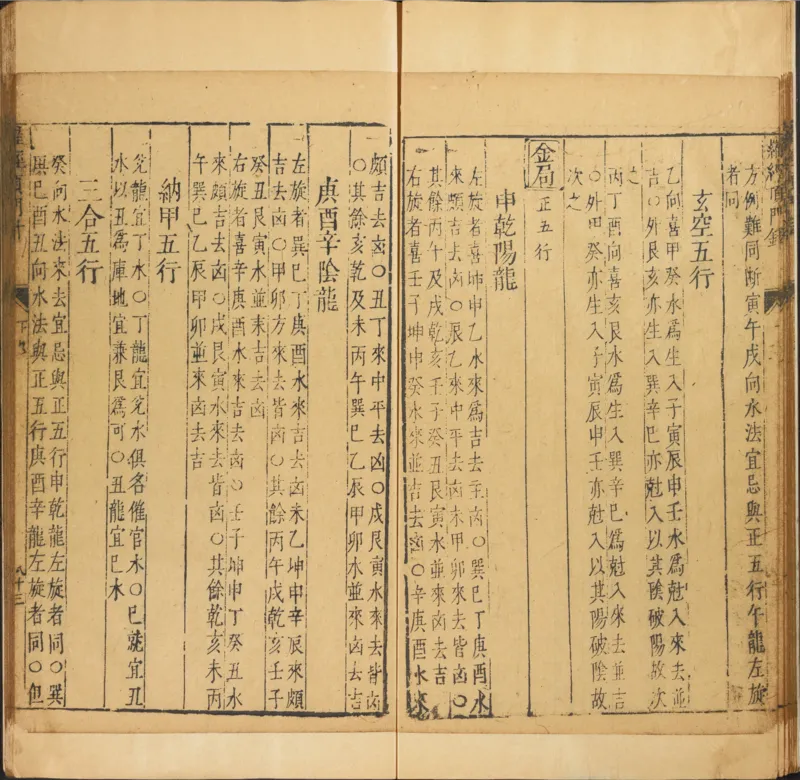 方例難同斷寅午戌向水法宜忌與正五行午龍左旋
者同
玄空五行
乙向喜甲癸水為生入子寅辰申壬水為尅入來去並
吉○外艮亥亦生入巽辛巳亦尅入以其陰破陽故次
之
丙丁酉向喜亥艮水為生入巽辛巳為尅入來去並吉
○外甲癸亦生入子寅辰申壬亦尅入以其陽破陰故
次之
金局
正五行
申乾陽龍
左旋者喜坤申乙水來為吉去主凶○巽巳丁庚酉水
來頗吉去凶○辰乙來中平去凶未甲卯來去皆凶○
其餘丙午及戌乾亥壬子癸丑艮寅水並來凶去吉
右旋者喜壬子坤申癸水來並吉去凶○辛庚酉水來
頗吉去凶○丑丁來中平去凶○戌艮寅水來去皆凶
○其餘亥乾及未丙午巽巳乙辰甲卯水並來凶去吉
庚酉辛陰龍
左旋者巽巳丁庚酉水來吉去凶未乙坤申辛辰來頗
吉去凶○甲卯方來去皆凶○其餘丙午戌乾亥壬子
癸丑艮寅水並來吉去凶
右旋者喜辛庚酉水來吉去凶○壬子坤申丁癸丑水
來頗吉去凶○戌艮寅水來去皆凶○其餘乾亥未丙
午巽巳乙辰甲卯並來凶去吉
納甲五行
兌龍宜丁水○丁龍宜兌水俱名催官水○巳龍宜丑
水以丑為庫地宜兼艮為可○丑龍宜巳水
三合五行
癸向水法來去宜忌與正五行申乾龍左旋者同○巽
庚巳酉丑向水法與正五行庚酉辛龍左旋者同○但
八十三